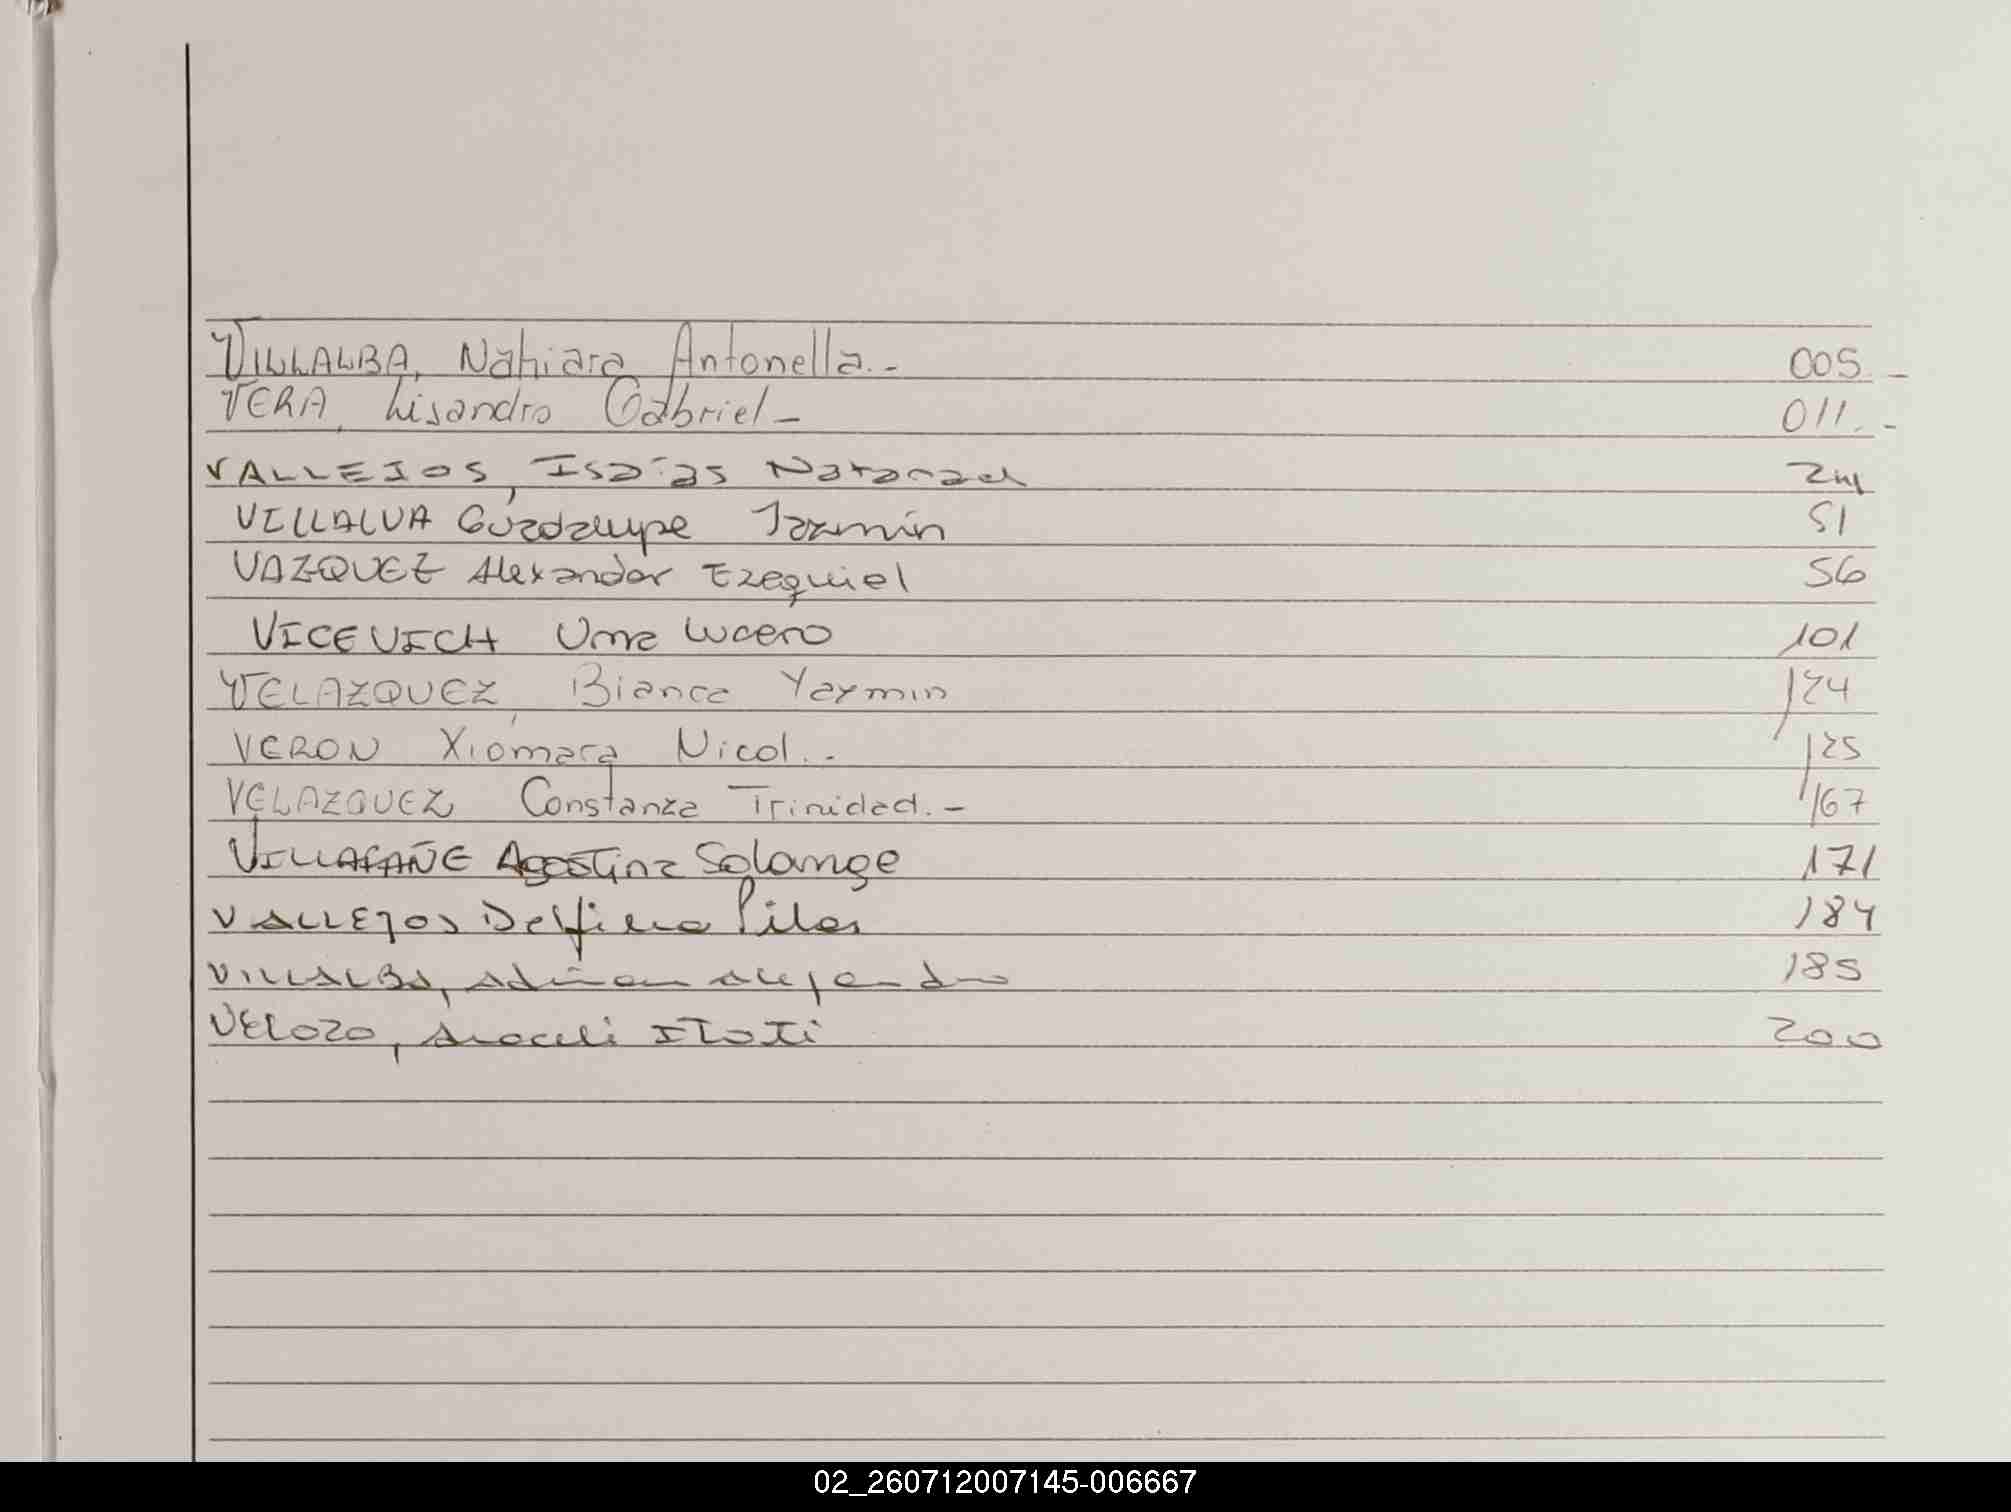 VILLALBA, Nahiara Antonella.- 005.-
VERA, Lisandro Gabriel- 011.-
VALLEJOS, Isaías Natanael 24
VILLALVA Guadalupe Jazmin 51
VAZQUEZ Alexander Ezequiel 56
VICEVICH Uma Lucero 101
VELAZQUEZ, Bianca Yazmin 124
VERON Xiomara Nicol.- 125
VELAZQUEZ Constanza Trinidad.- 167
VILLAFAÑE Agostina Solange 171
VALLEJOS Delfina Pilar 184
VILLALBA, Adrian Alejandro 185
VELOZO, Araceli Itati 200
02_260712007145-006667